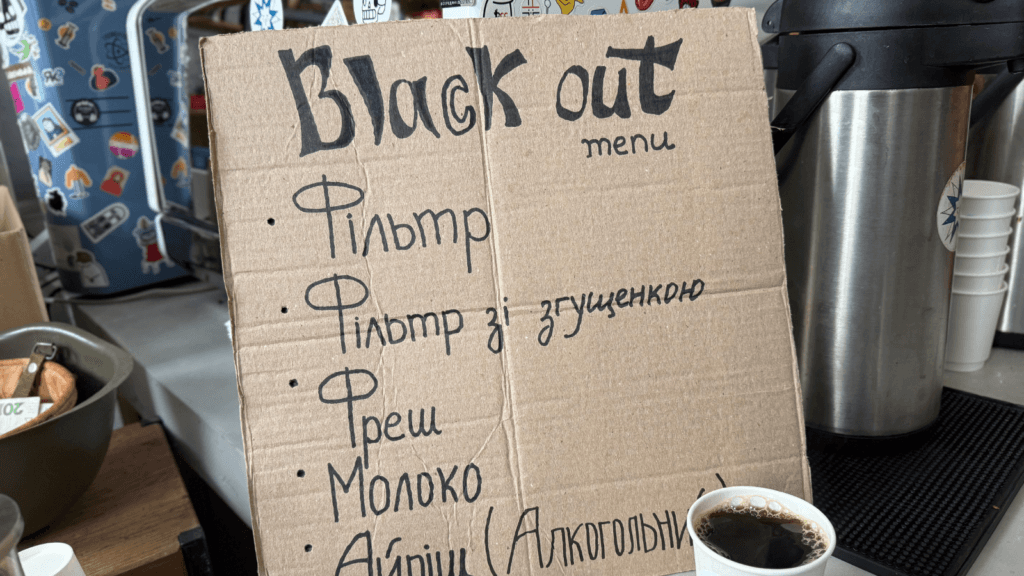 Black out
menu
• Фільтр
• Фільтр зі згущенкою
• Фреш
• Молоко
• Айріш (Алкогольний)